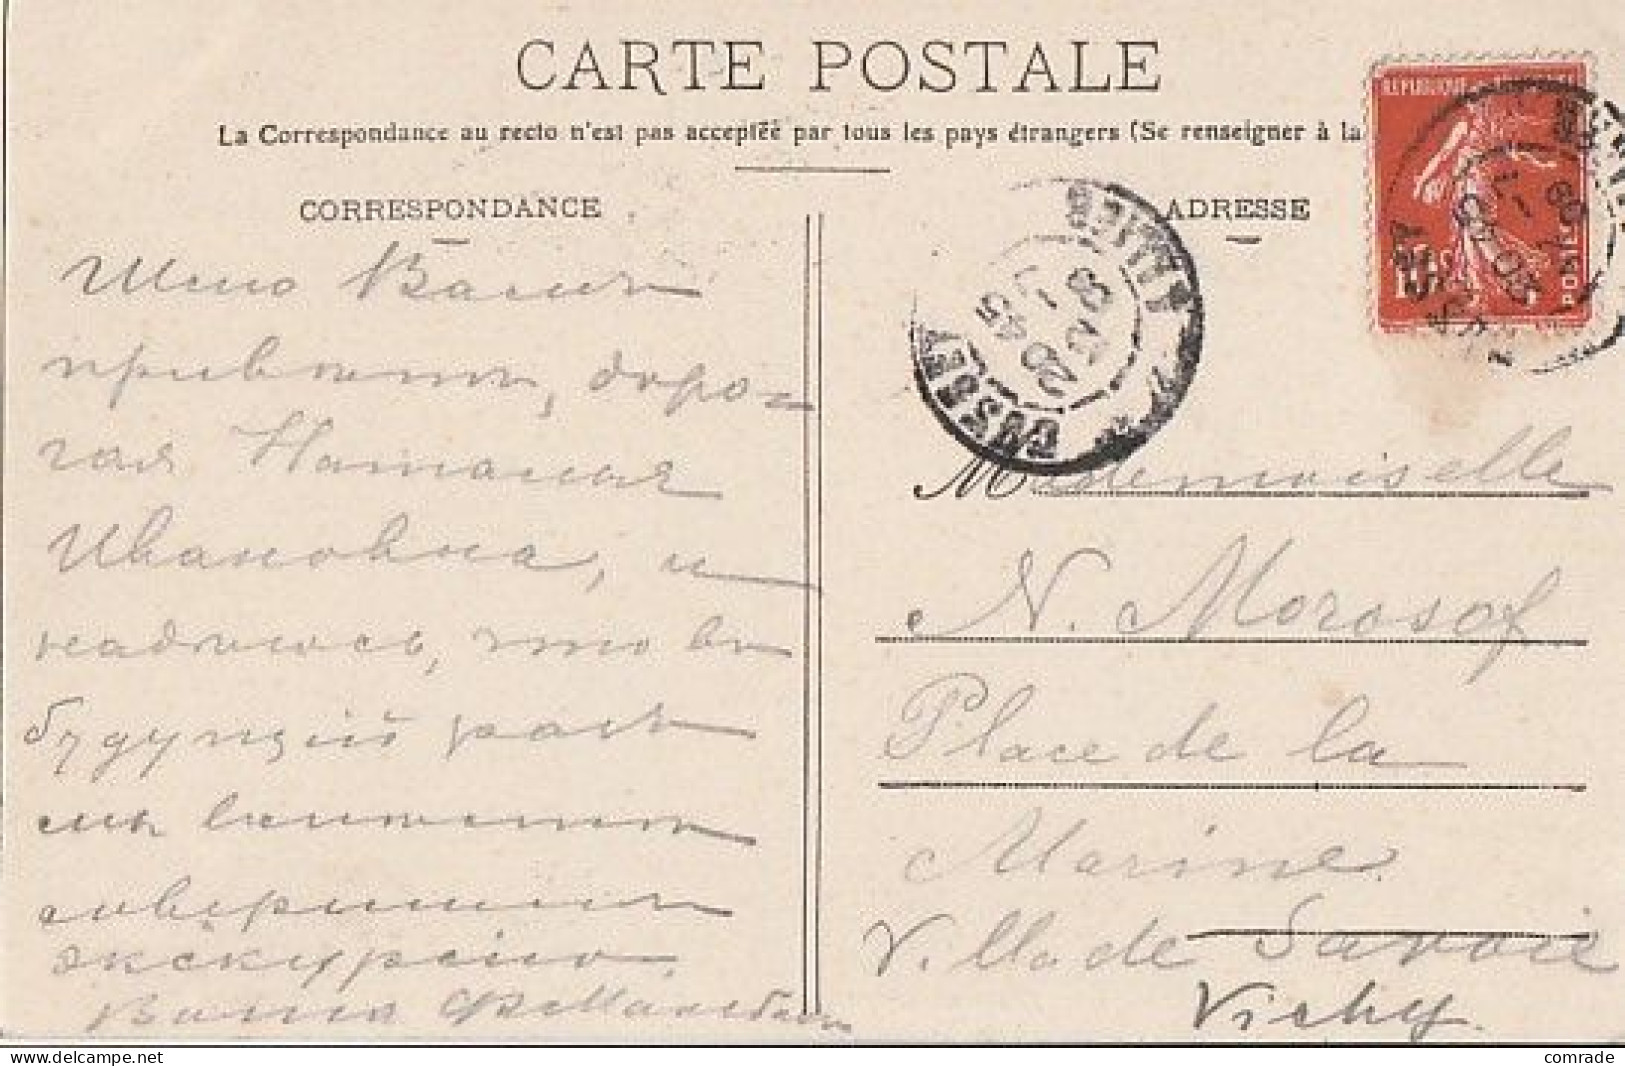 CARTE POSTALE
La Correspondance au recto n'est pas acceptée par tous les pays étrangers (Se renseigner à la
CORRESPONDANCE
ADRESSE
REPUBLIQUE
POSTES
CUSSET
ALLIER
Шлю Вамъ
привѣтъ, доро-
гая Наталья
Ивановна, и
надѣюсь, что въ
будущій разъ
мы вмѣстѣ
совершимъ
экскурсію.
Mademoiselle
N. Morosof
Place de la
Marine
Villa de Savoie
Vichy.
comrade
www.delcampe.net